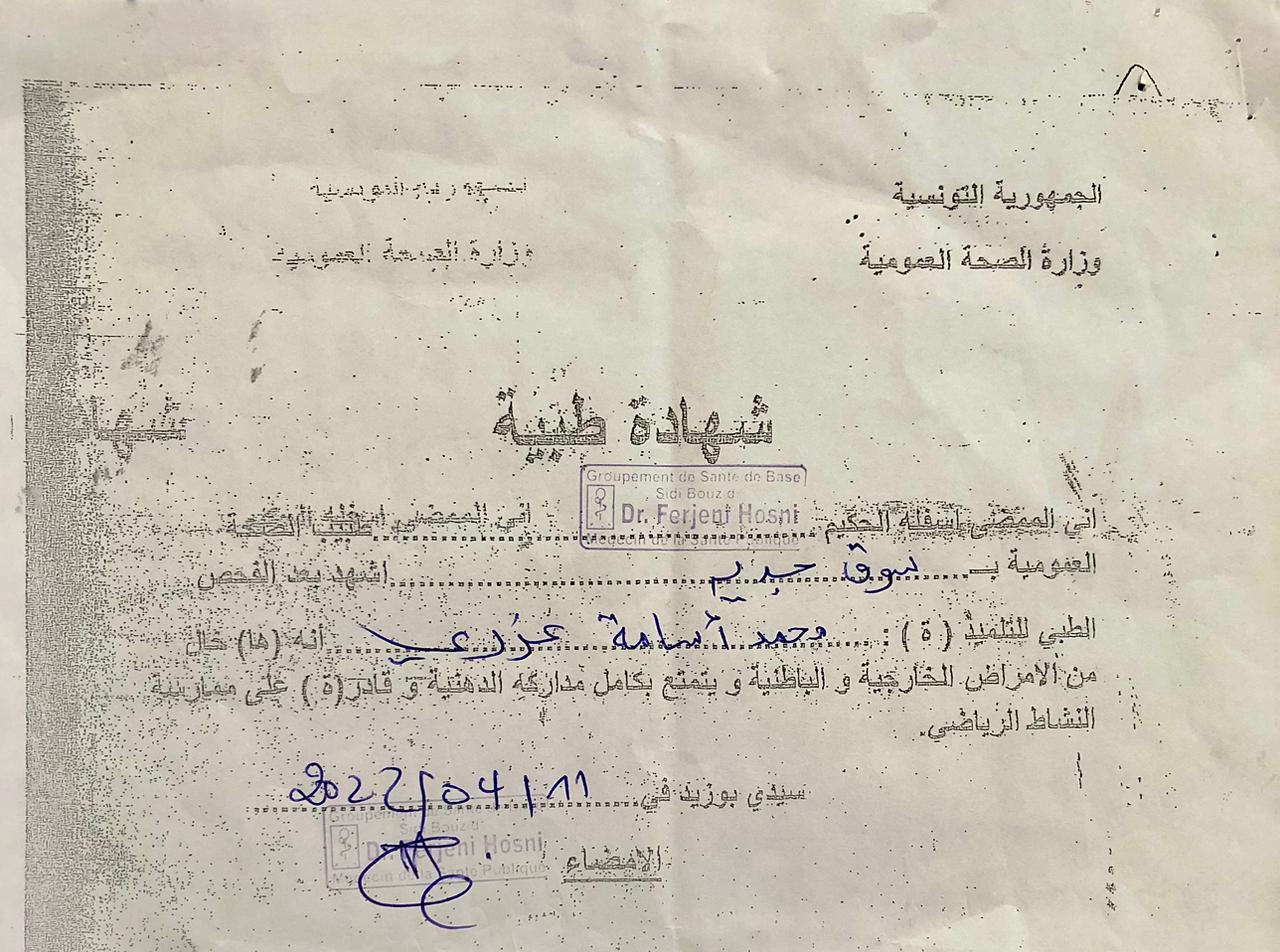 الجمهورية التونسية
وزارة الصحة العمومية
وزارة الصحة العمومية
شهادة طبية
شهاد
Groupement de Sante de Base
Sidi Bouzid
Dr. Ferjeni Hosni
Medecin de la Sante Publique
اني الممضي اسفله الحكيم طبيب الصحة
اني الممضي اسفله
العمومية بـ سوق جديد اشهد بعد الفحص
الطبي للتلميذ ( ة ) : محمد أسامة عزري أنه (ها) خال
من الامراض الخارجية و الباطنية و يتمتع بكامل مداركه الذهنية و قادر(ة ) على ممارسة
النشاط الرياضي.
سيدي بوزيد في 2022/04/11
الامضاء
Groupement de Sante de Base
Sidi Bouzid
Dr. Ferjeni Hosni
Medecin de la Sante Publique